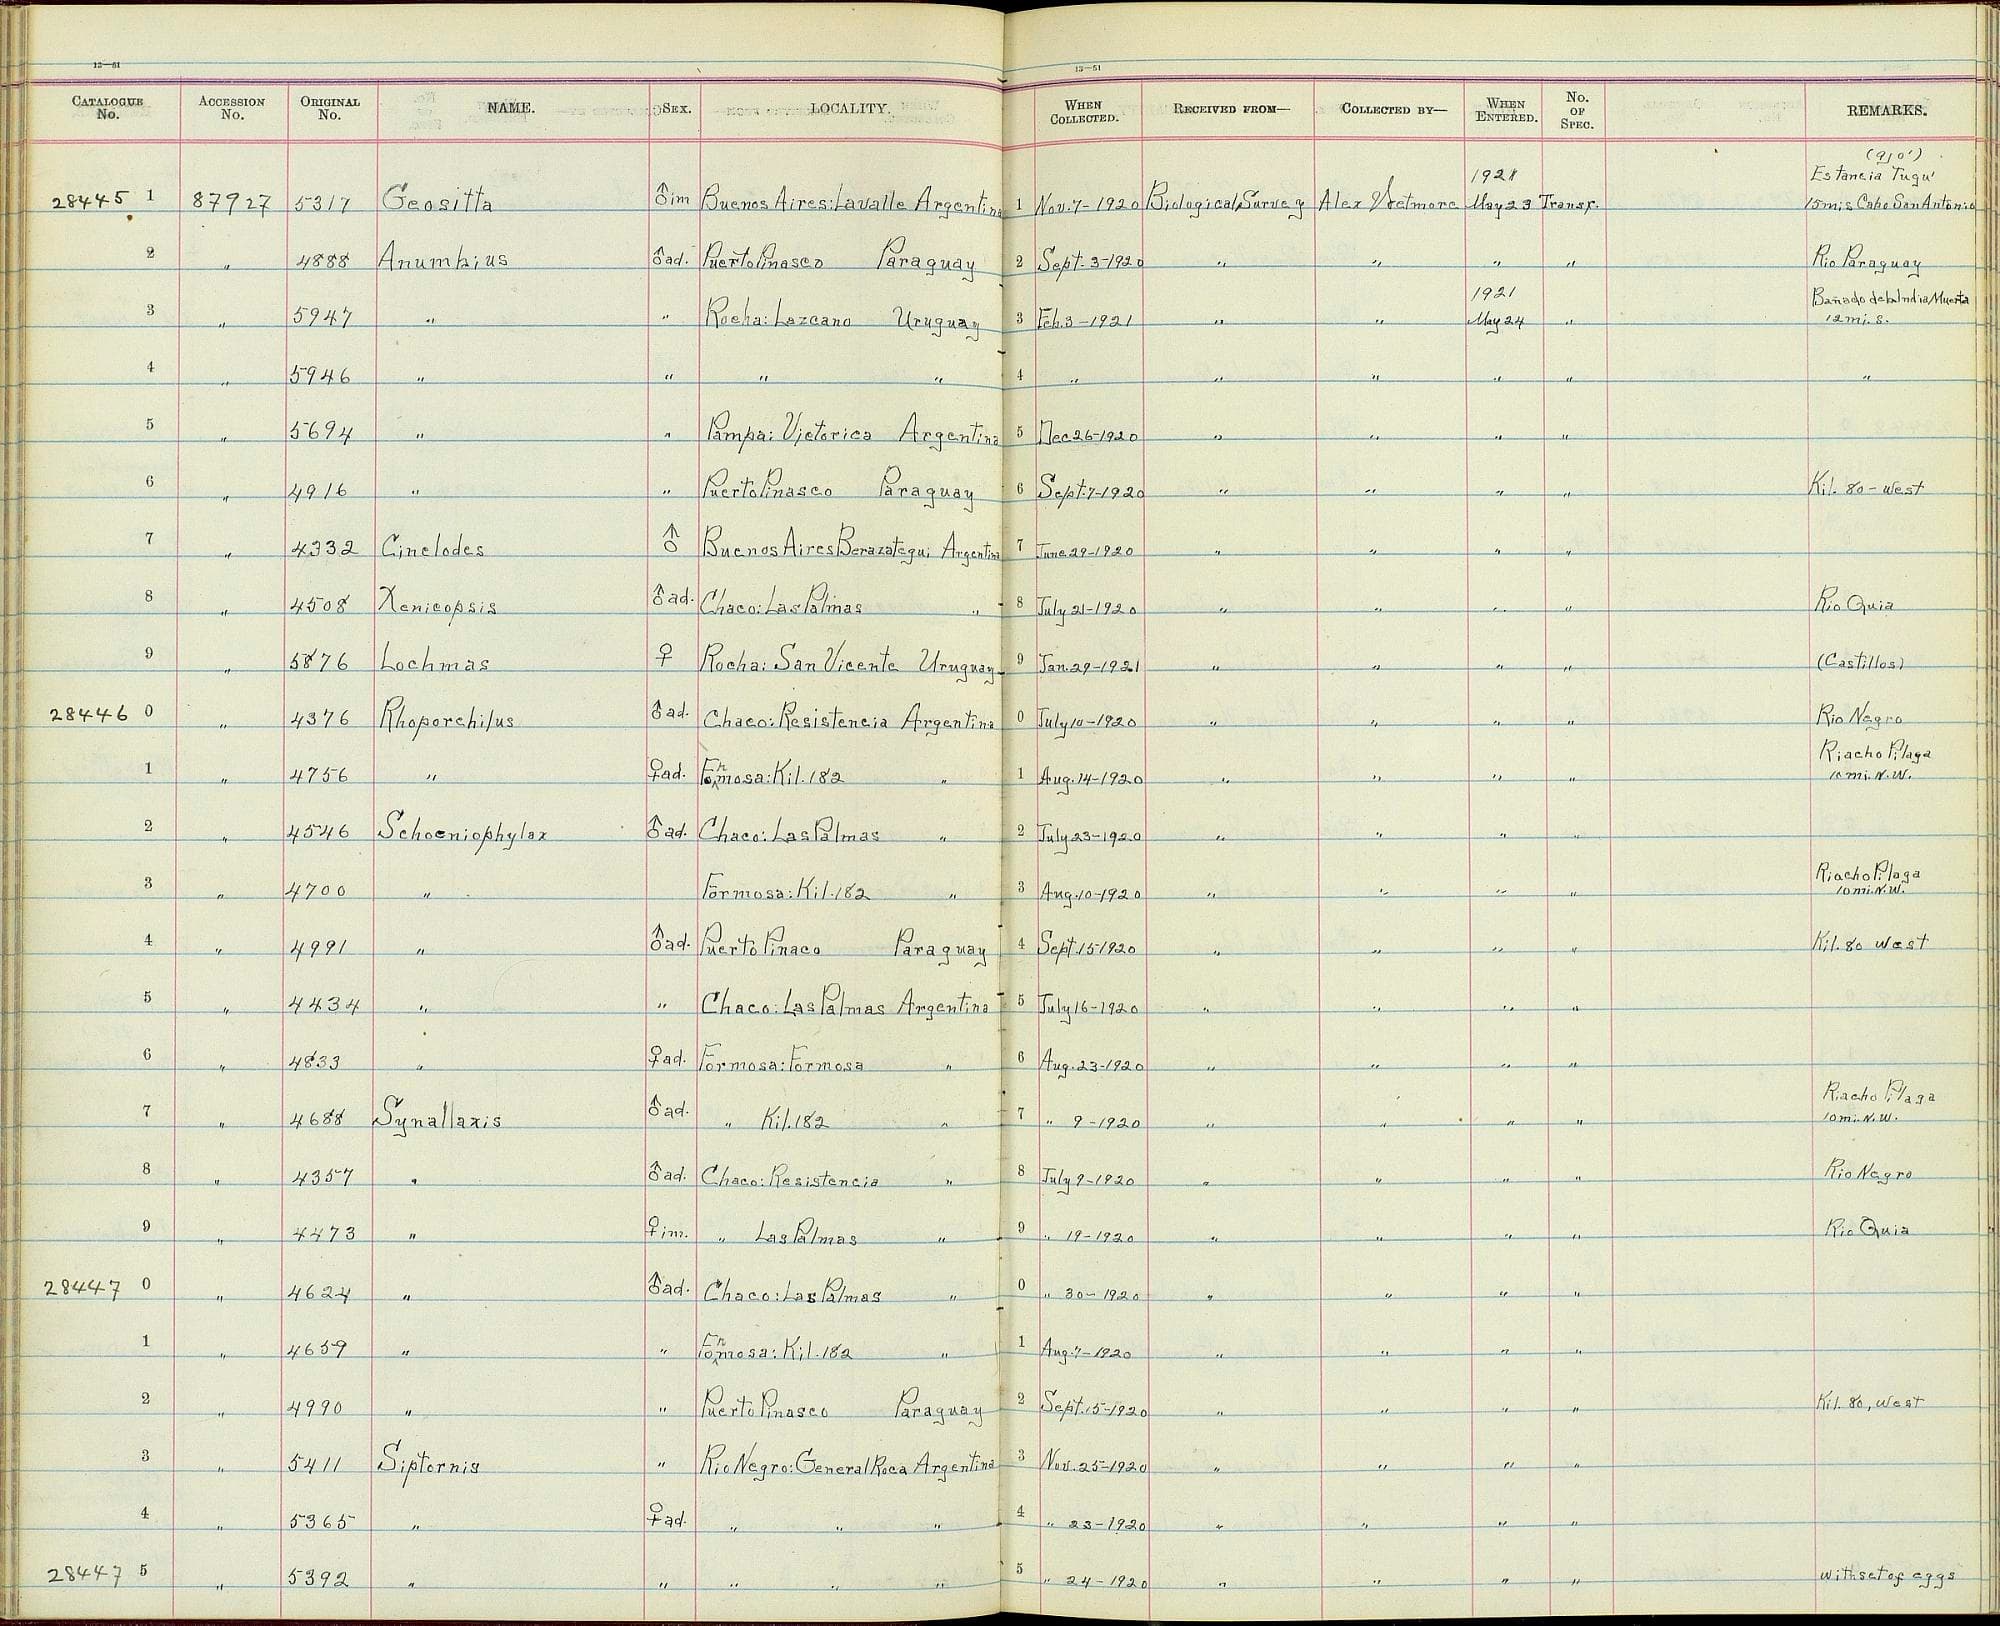 13—51 13—51
CATALOGUE No. ACCESSION No. ORIGINAL No. NAME. SEX. LOCALITY. WHEN COLLECTED. RECEIVED FROM— COLLECTED BY— WHEN ENTERED. No. OF SPEC. REMARKS.
28445 1 87927 5317 Geositta ♂im Buenos Aires: Lavalle Argentina 1 Nov. 7-1920 Biological Survey Alex Wetmore 1921 May 23 Transf. Estancia Tuyu' 15 mis Cabo San Antonio
2 " 4888 Anumbius ♂ad. Puerto Pinasco Paraguay 2 Sept. 3-1920 " " " " Rio Paraguay
3 " 5947 " " Rocha: Lazcano Uruguay 3 Feb. 3-1921 " " 1921 May 24 " Bañado de la India Muerta 12 mi. S.
4 " 5946 " " " " 4 " " " " " "
5 " 5694 " " Pampa: Victorica Argentina 5 Dec 26-1920 " " " "
6 " 4916 " " Puerto Pinasco Paraguay 6 Sept. 7-1920 " " " " Kil. 80 - West
7 " 4332 Cinclodes ♂ Buenos Aires Berazategui Argentina 7 June 29-1920 " " " "
8 " 4508 Xenicopsis ♂ad. Chaco: Las Palmas " 8 July 21-1920 " " " " Rio Quia
9 " 5876 Lochmas ♀ Rocha: San Vicente Uruguay 9 Jan. 29-1921 " " " " (Castillos)
28446 0 " 4376 Rhoporchilus ♂ad. Chaco: Resistencia Argentina 0 July 10-1920 " " " " Rio Negro
1 " 4756 " ♀ad. Formosa: Kil. 182 " 1 Aug. 14-1920 " " " " Riacho Pilaga 10 mi. N.W.
2 " 4546 Schoeniophylax ♂ad. Chaco: Las Palmas " 2 July 23-1920 " " " "
3 " 4700 " Formosa: Kil. 182 " 3 Aug. 10-1920 " " " " Riacho Pilaga 10 mi. N.W.
4 " 4991 " ♂ad. Puerto Pinaco Paraguay 4 Sept. 15 1920 " " " " Kil. 80 West
5 " 4434 " " Chaco: Las Palmas Argentina 5 July 16-1920 " " " "
6 " 4833 " ♀ad. Formosa: Formosa " 6 Aug. 23-1920 " " " "
7 " 4688 Synallaxis ♂ad. " Kil. 182 " 7 " 9-1920 " " " " Riacho Pilaga 10 mi. N.W.
8 " 4357 " ♂ad. Chaco: Resistencia " 8 July 9-1920 " " " " Rio Negro
9 " 4473 " ♀im. " Las Palmas " 9 " 19-1920 " " " " Rio Quia
28447 0 " 4624 " ♂ad. Chaco: Las Palmas " 0 " 30-1920 " " " "
1 " 4659 " " Formosa: Kil. 182 " 1 Aug. 7-1920 " " " "
2 " 4990 " " Puerto Pinasco Paraguay 2 Sept. 15-1920 " " " " Kil. 80, West
3 " 5411 Siptornis " Rio Negro: General Roca Argentina 3 Nov. 25-1920 " " " "
4 " 5365 " ♀ad. " " " 4 " 23-1920 " " " "
28447 5 " 5392 " " " " " 5 " 24-1920 " " " " with set of eggs